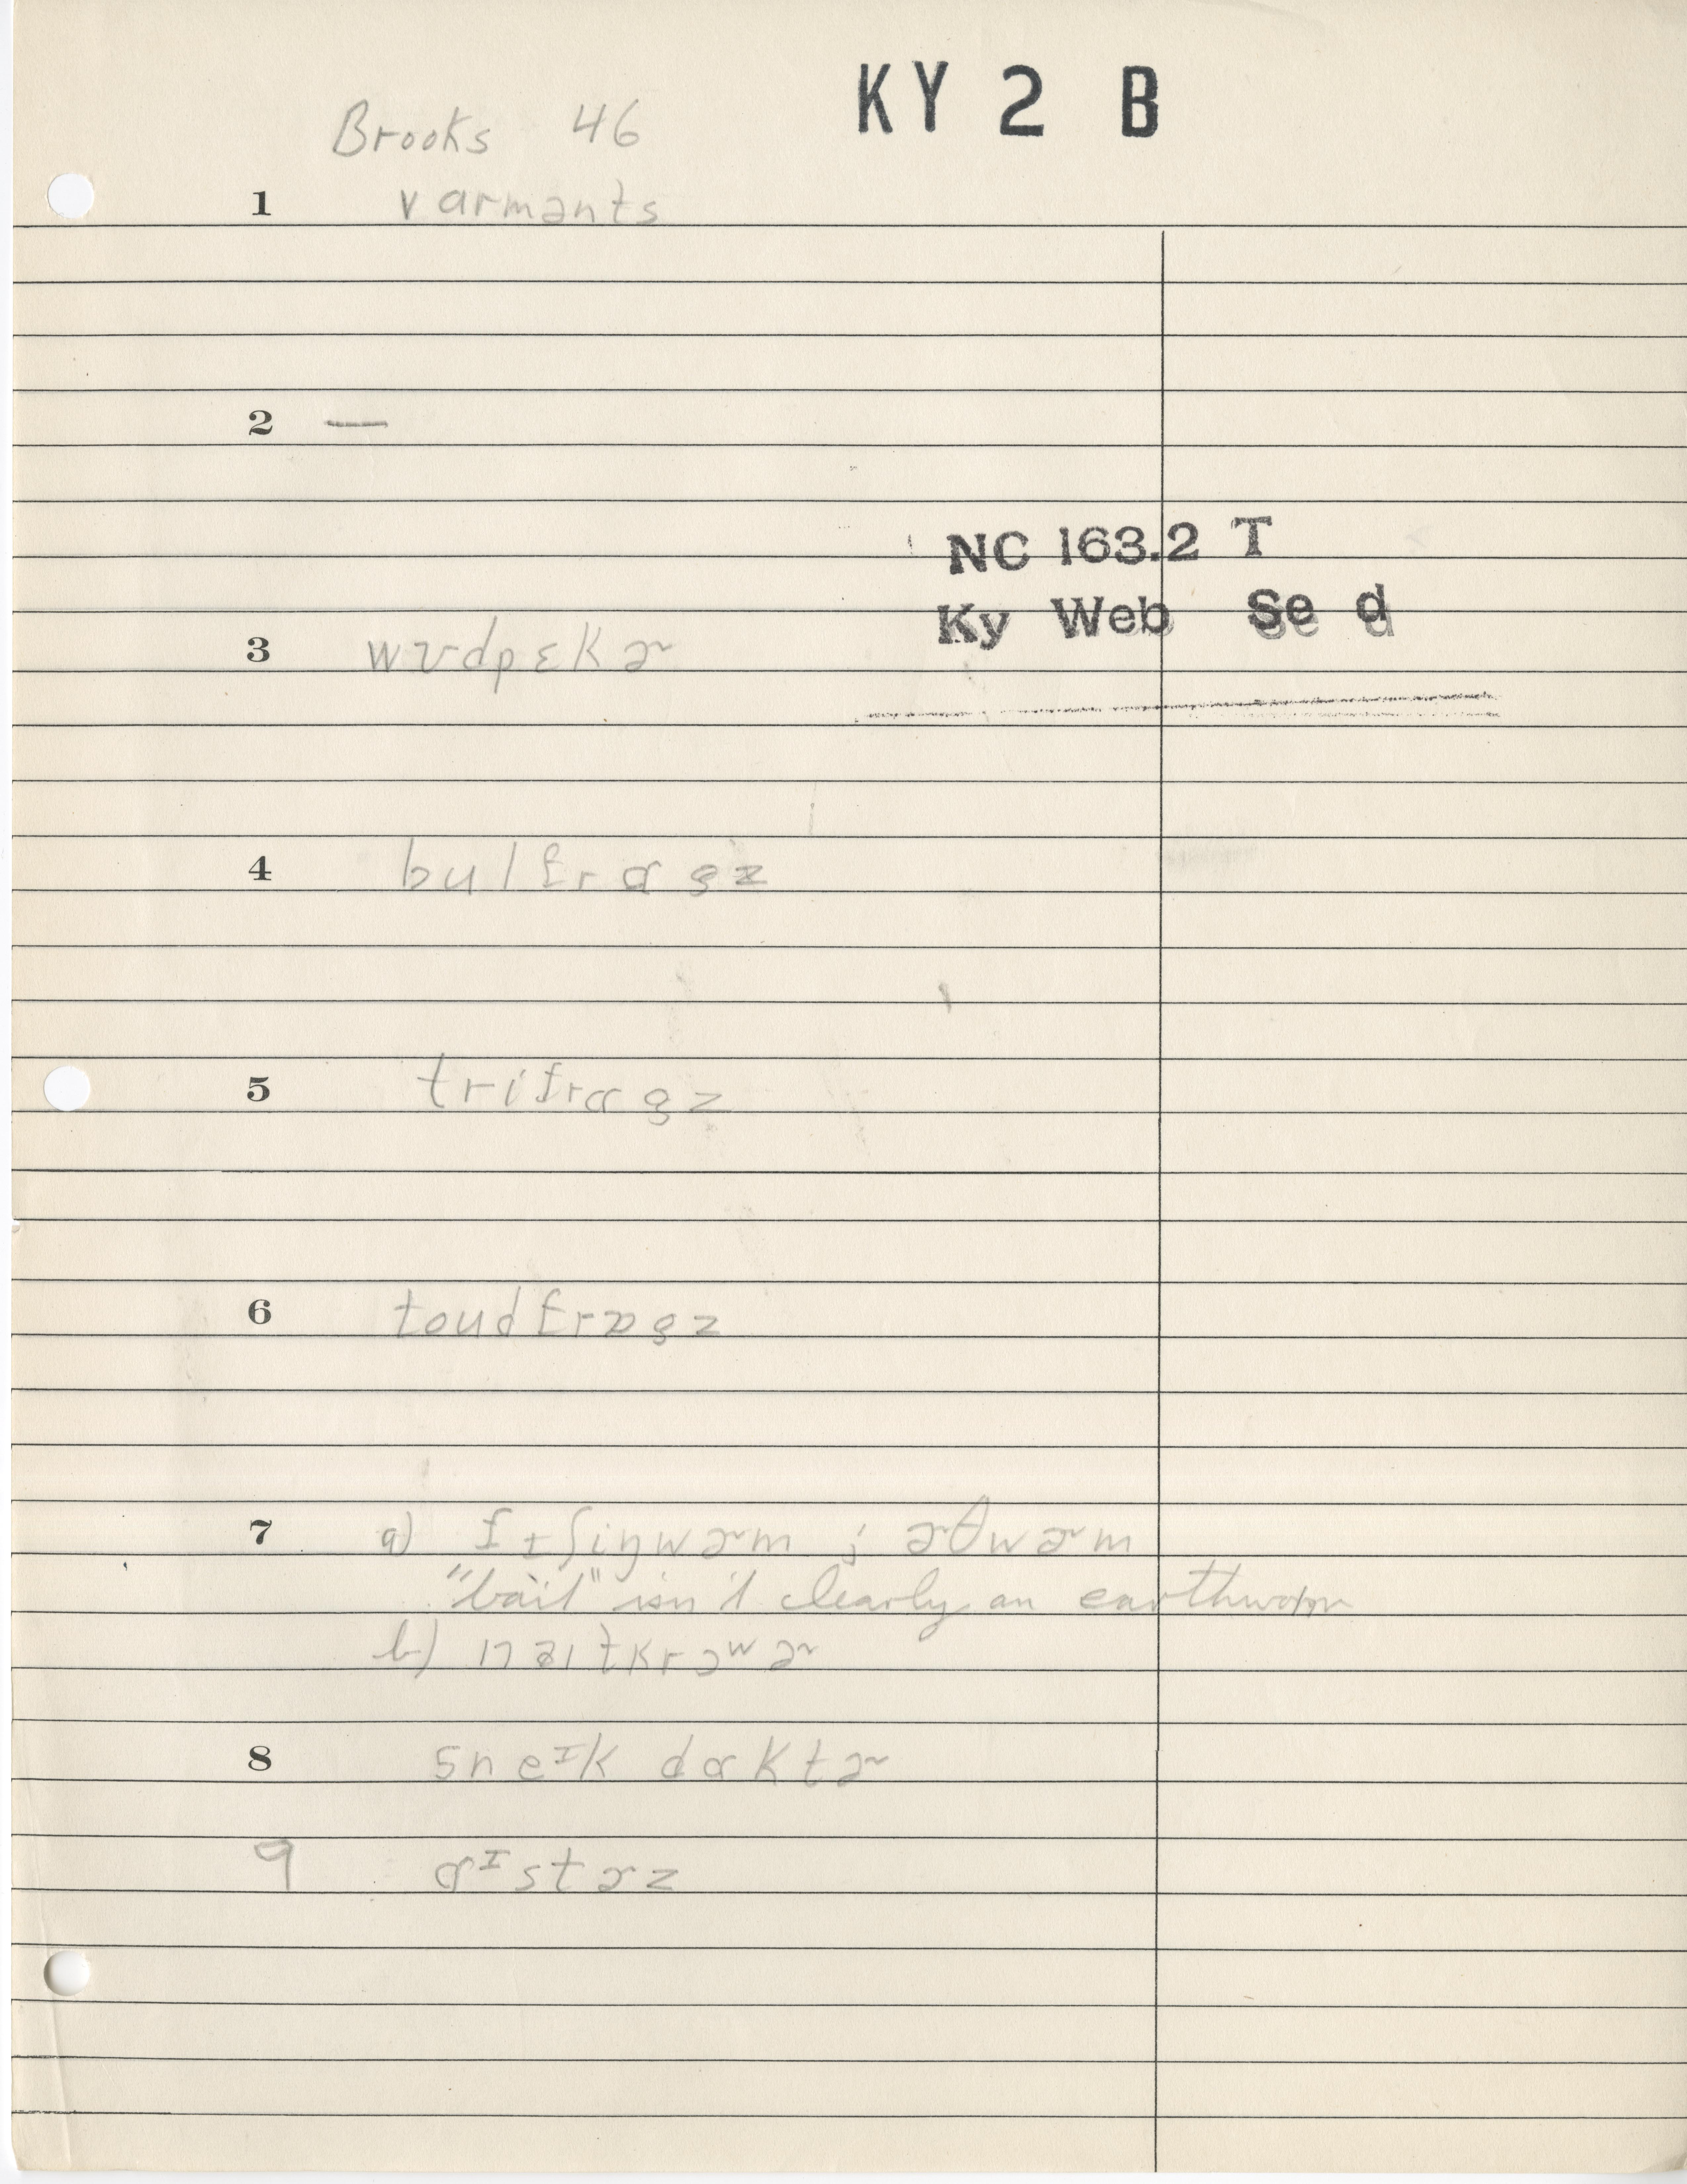 KY 2 B
Brooks 46
1 varmənts
2 —
NC 163.2 T
Ky Web Se d
3 wʊdpɛkɚ
4 bulfrɑgz
5 trifrɑgz
6 toudfrɒgz
7 a) fɪʃiŋwɚm ; ɚθwɚm
"bait" isn't clearly an earthworm
b)
8 sneᶦk dɑktɚ
9 ɑᶦstɚz